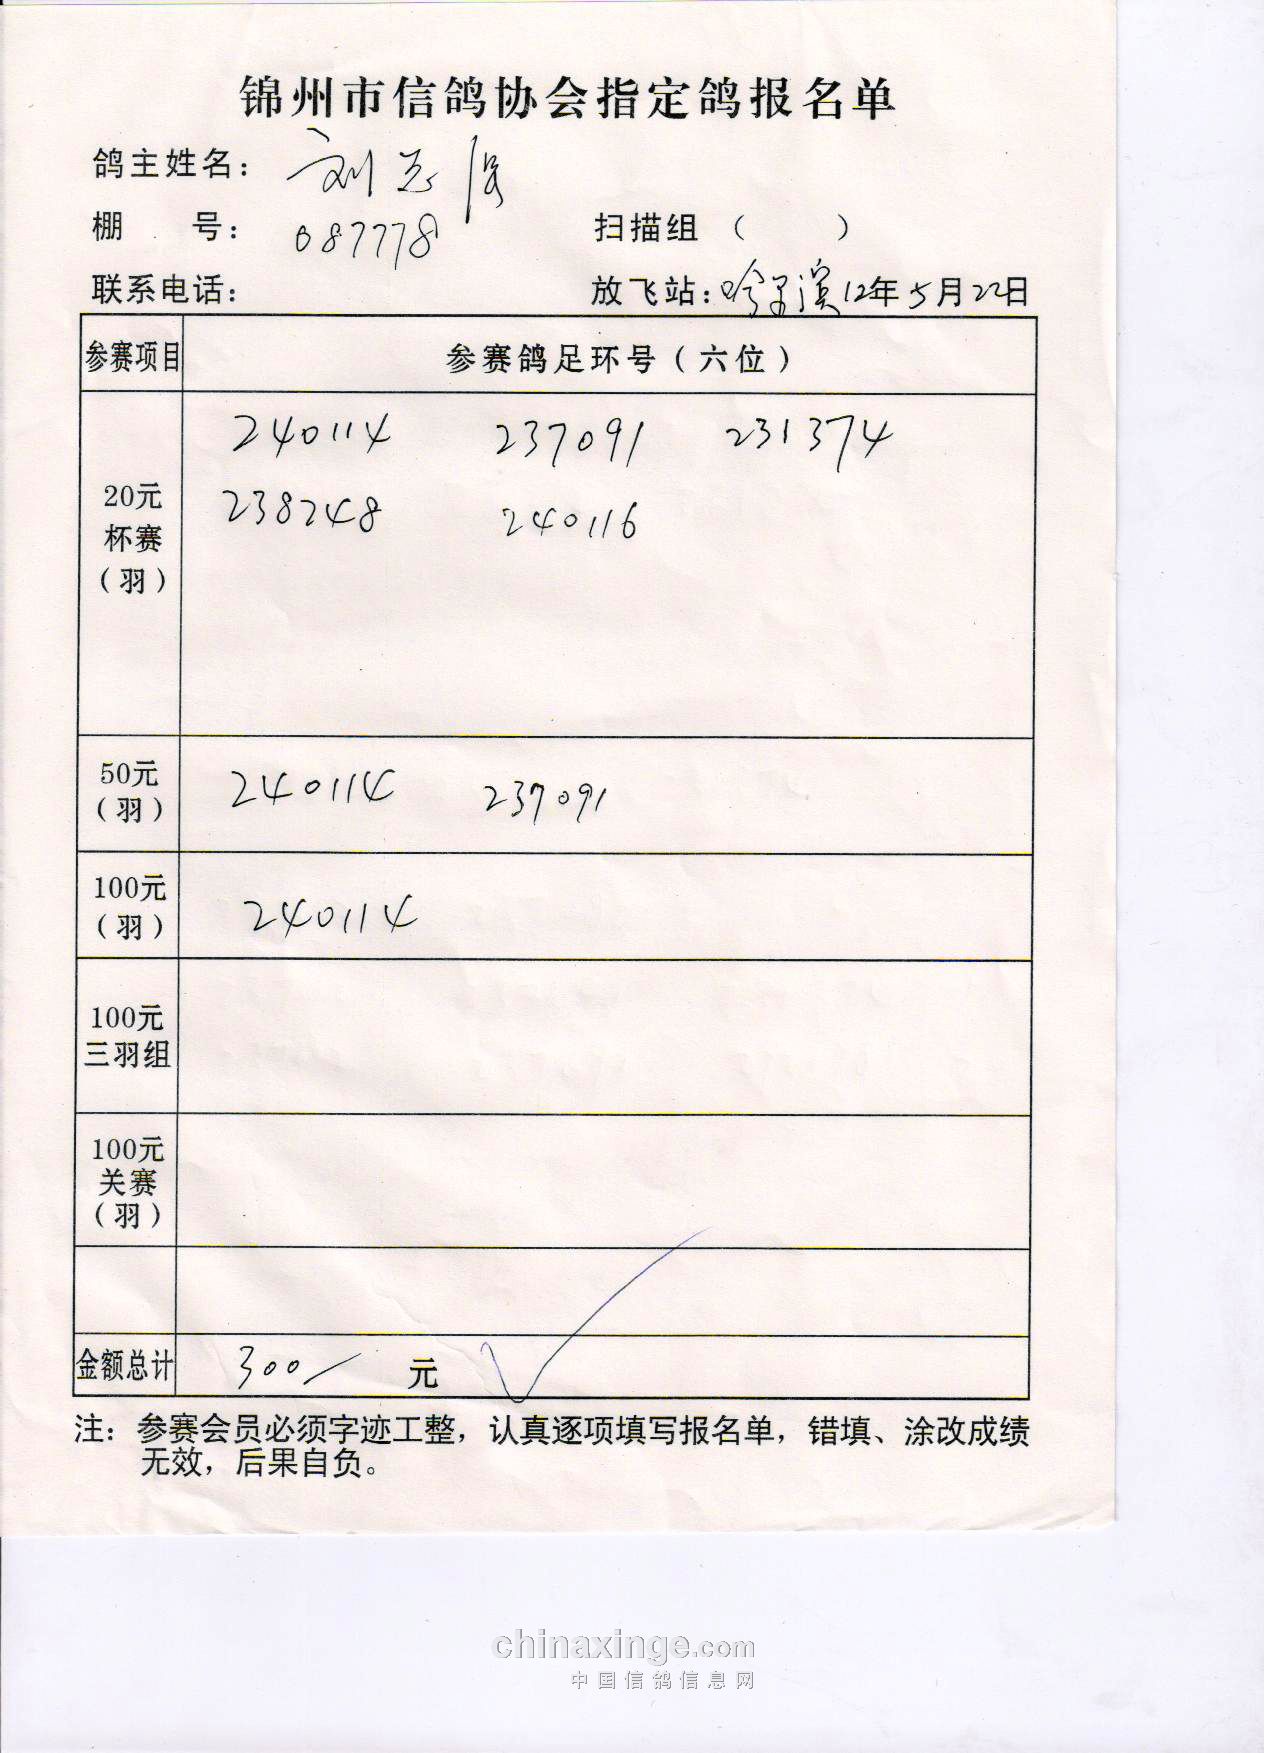 锦州市信鸽协会指定鸽报名单
鸽主姓名: 刘志
棚 号: 087778 扫描组 ( )
联系电话: 放飞站: 哈尔滨 12年5月22日
参赛项目 参赛鸽足环号(六位)
20元 杯赛 (羽)
240114 237091 231374
238248 240116
50元 (羽) 240114 237091
100元 (羽) 240114
100元 三羽组
100元 关赛 (羽)
金额总计 300/ 元
注: 参赛会员必须字迹工整, 认真逐项填写报名单, 错填、涂改成绩
无效, 后果自负。
chinaxinge.com
中国信鸽信息网